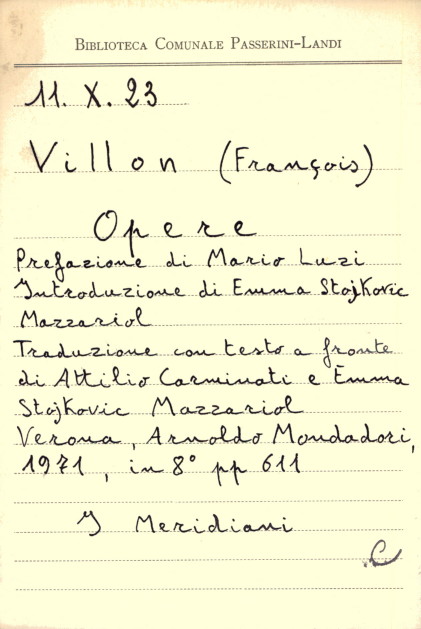 BIBLIOTECA COMUNALE PASSERINI-LANDI
11. X. 23
Villon (François)
Opere
Prefazione di Mario Luzi
Introduzione di Emma Stojkovic
Mazzariol
Traduzione con testo a fronte
di Attilio Carminati e Emma
Stojkovic Mazzariol
Verona, Arnoldo Mondadori,
1971, in 8° pp 611
I Meridiani
C